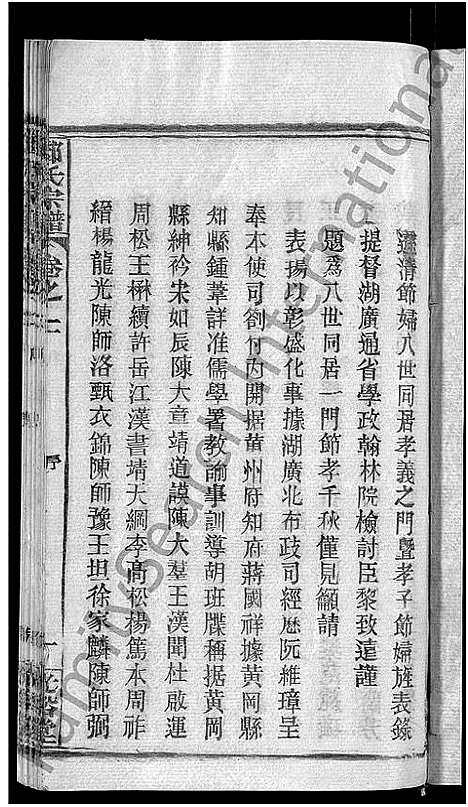 遜清節婦八世同居孝義之門曁孝子節婦旌表錄
提督湖廣通省學政翰林院檢討臣黎致遠謹
題爲八世同居一門節孝千秋僅見籲請
表揚以彰盛化事據湖廣北布政司經歷阮維璋呈
奉本使司劄付內開据黃州府知府蔣國祥據黃岡縣
知縣鍾葦詳准儒學署教諭事訓導胡班牒稱据黃岡
縣紳衿朱如辰陳大章靖道謨陳大羣王漢聞杜啟運
周松王楙續許岳江漢書靖大綱李高松楊篤本周祚
縉楊龍光陳師洛甄衣錦陳師豫王坦徐家麟陳師弼
鄒氏宗譜 卷之 序 一
FamilySearch International